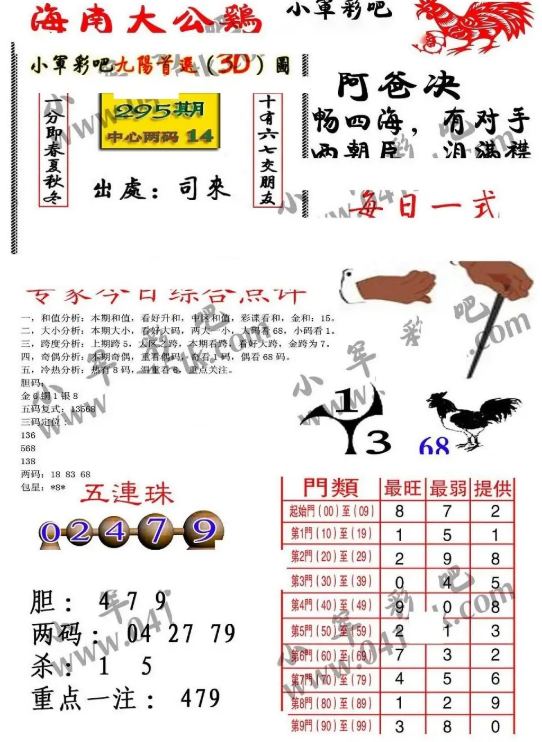 海南大公鷄
小軍彩吧
小軍彩吧九陽首選(3D)圖
一分即春夏秋冬
295期
中心两码 14
十有六七交朋友
出處：司來
阿爸决
畅四海，有对手
两朝臣，泪满襟
每日一式
专家今日综合点评
一，和值分析：本期和值，看好升和，中区和值，彩课看和，金和：15。
二，大小分析：本期大小，看好大码，两大一小，大码看68，小码看1。
三，跨度分析：上期跨5，大区之跨，本期看跨，看好大跨，金跨为7。
四，奇偶分析：本期奇偶，重看偶码，奇看1码，偶看68码。
五，冷热分析：热有8码，温重看6，重点关注。
胆码：
金6 铜1 银8
五码复式：13568
三码定位：
136
568
138
两码：18 83 68
包星：*8*
1
3
68
五連珠
0 2 4 7 9
胆：4 7 9
两码：04 27 79
杀：1 5
重点一注：479
門類 最旺 最弱 提供
起始門(00)至(09) 8 7 2
第1門(10)至(19) 1 5 1
第2門(20)至(29) 2 9 8
第3門(30)至(39) 0 4 5
第4門(40)至(49) 9 0 8
第5門(50)至(59) 2 1 3
第6門(60)至(69) 7 3 2
第7門(70)至(79) 4 5 6
第8門(80)至(89) 1 2 9
第9門(90)至(99) 3 8 0